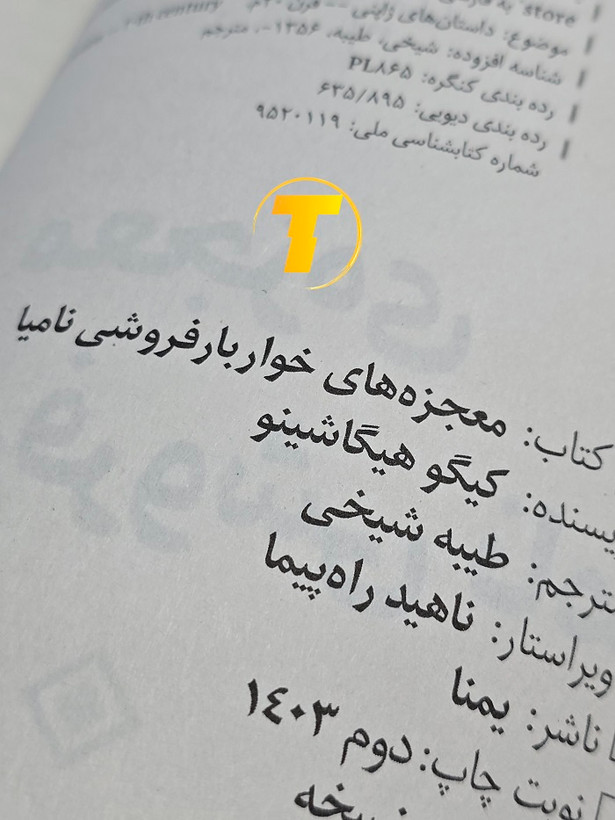 store" به فارسی
موضوع: داستان‌های ژاپنی -- قرن ۲۰م.
th century
شناسه افزوده: شیخی، طیبه، ۱۳۵۶-، مترجم
رده بندی کنگره: PL۸۶۵
رده بندی دیویی: ۶۳۵/۸۹۵
شماره کتابشناسی ملی: ۹۵۲۰۱۱۹
T
کتاب: معجزه‌های خواربارفروشی نامیا
یسنده: کیگو هیگاشینو
ترجم: طیبه شیخی
ویراستار: ناهید راه‌پیما
ناشر: یمنا
نوبت چاپ: دوم ۱۴۰۳